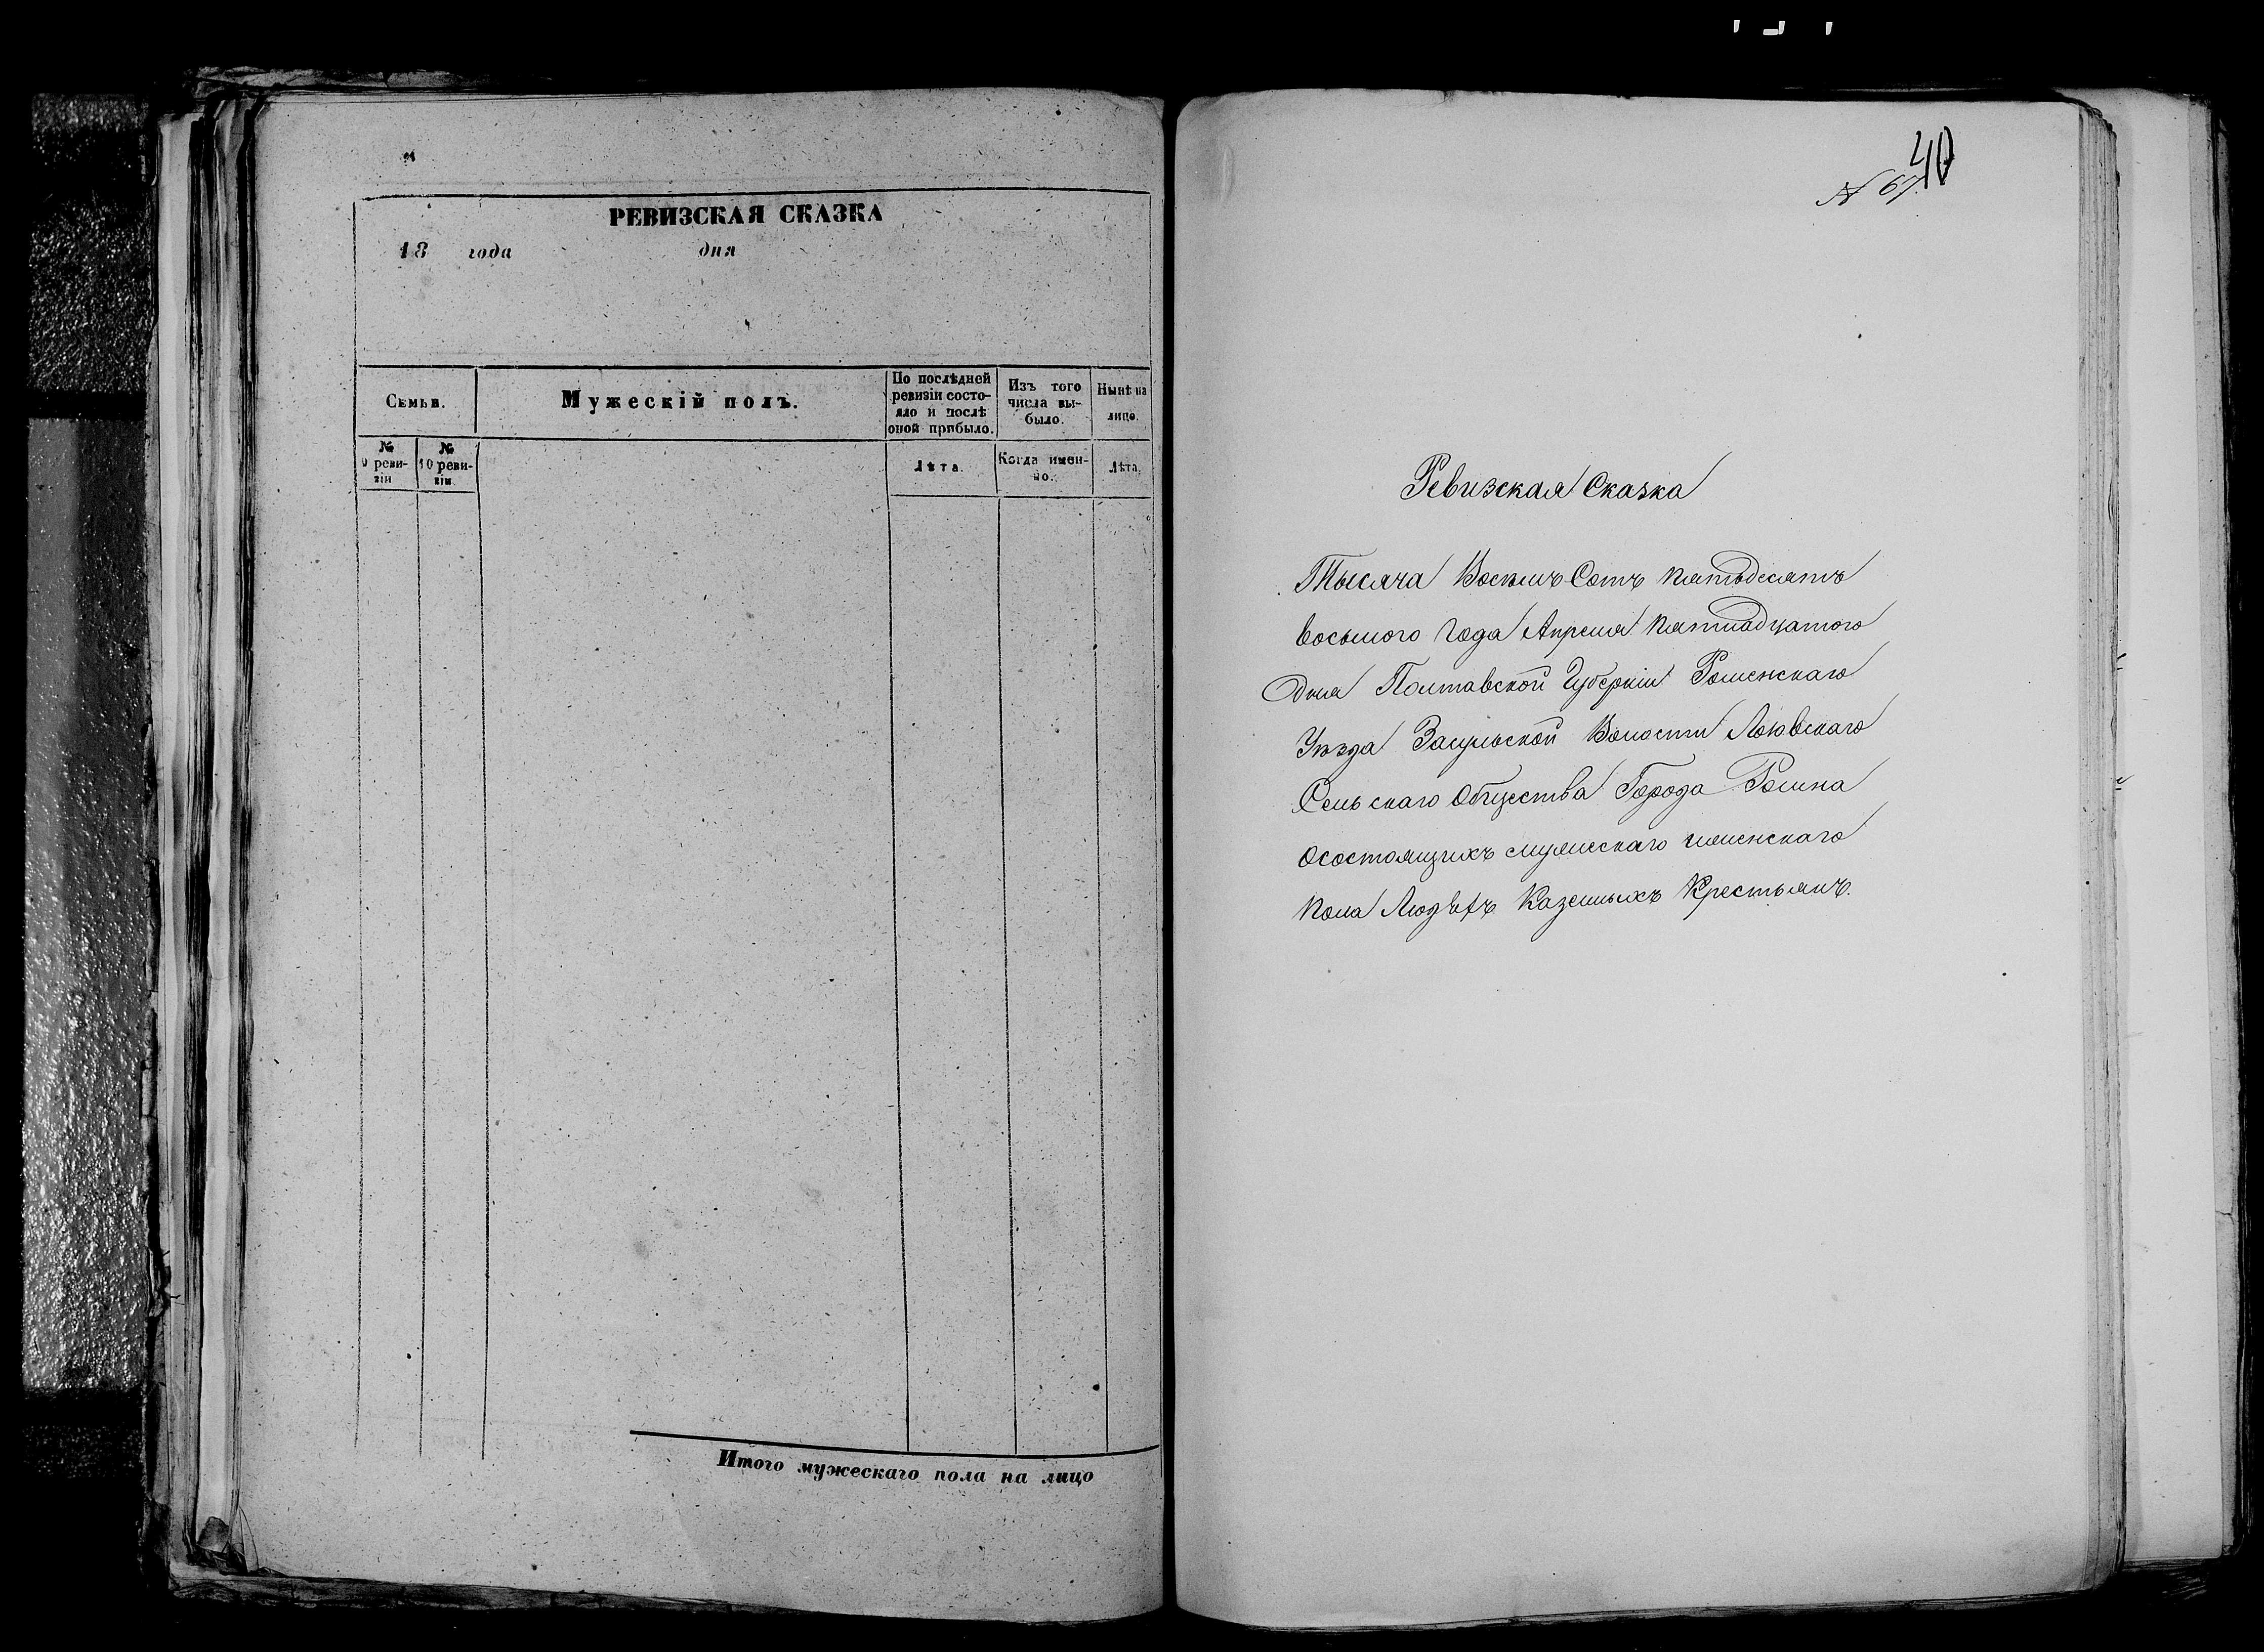 РЕВИЗСКАЯ СКАЗКА
18 года дня
Семьи.
Мужескій полъ.
По послѣдней ревизіи состояло и послѣ оной прибыло.
Изъ того числа выбыло.
Нынѣ на лицо.
№ 9 ревизіи
№ 10 ревизіи.
Лѣта.
Когда именно.
Лѣта.
Итого мужескаго пола на лицо
40
№ 67.
Ревизская Сказка
Тысяча Восемъ Сотъ пятьдесятъ
восьмого Года Апреля пятнадцатого
Дня Полтавской Губерніи Роменскаго
Уѣзда Засульской Волости
Сельскаго Общества Города Ромна
Осостоящихъ смужескаго иженскаго
пола Людѣхъ Казенныхъ Крестьянъ.